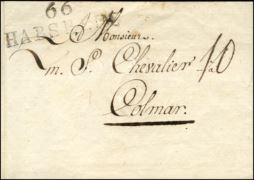 66
Monsieur.
m. P. Chevalier 10
Colmar.